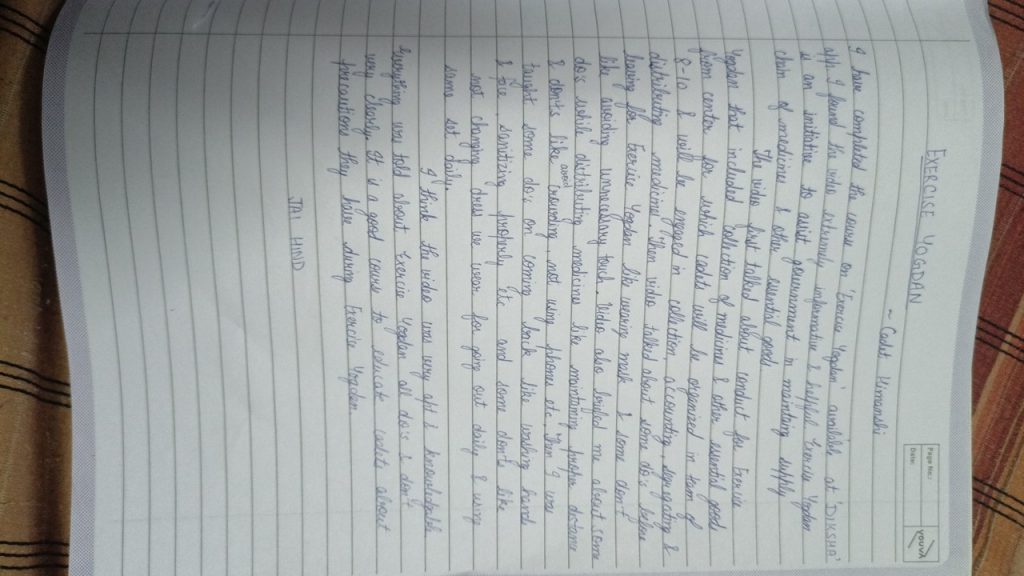 Page No.:
Date:
YOUVA
EXERCISE YOGDAN
~ Cadet Himanshi
I have completed the course on 'Exercise Yogdan' available at 'DIKSHA'
app. I found the video extremely informative & helpful. Exercise Yogdan
is an initiative to assist government in maintaining supply
chain of medicines & other essential goods.
The video first talked about conduct for Exercise
Yogdan that included collection of medicines & other essential good
from center for which cadets will be organized in team of
8-10 & will be engaged in collection, accounting, segregating &
distributing medicines. Then video talked about some do's before
leaving for Exercise Yogdan like wearing mask & some don't
like avoiding unnecessary touch. Video also briefed me about some
do's while distributing medicine like maintaining proper distance
& don'ts like avoid crowding, not using phones etc. Then I was
taught some do's on coming back like washing hand
& face, sanitizing properly etc and some don'ts like
not changing dress we wear for going out daily & using
same set daily.
I think the video was very apt & knowledgable
Everything was told about Exercise Yogdan all do's & don't
very clearly. It is a good course to educate cadets about
precautions they have during Exercise Yogdan.
JAI HIND